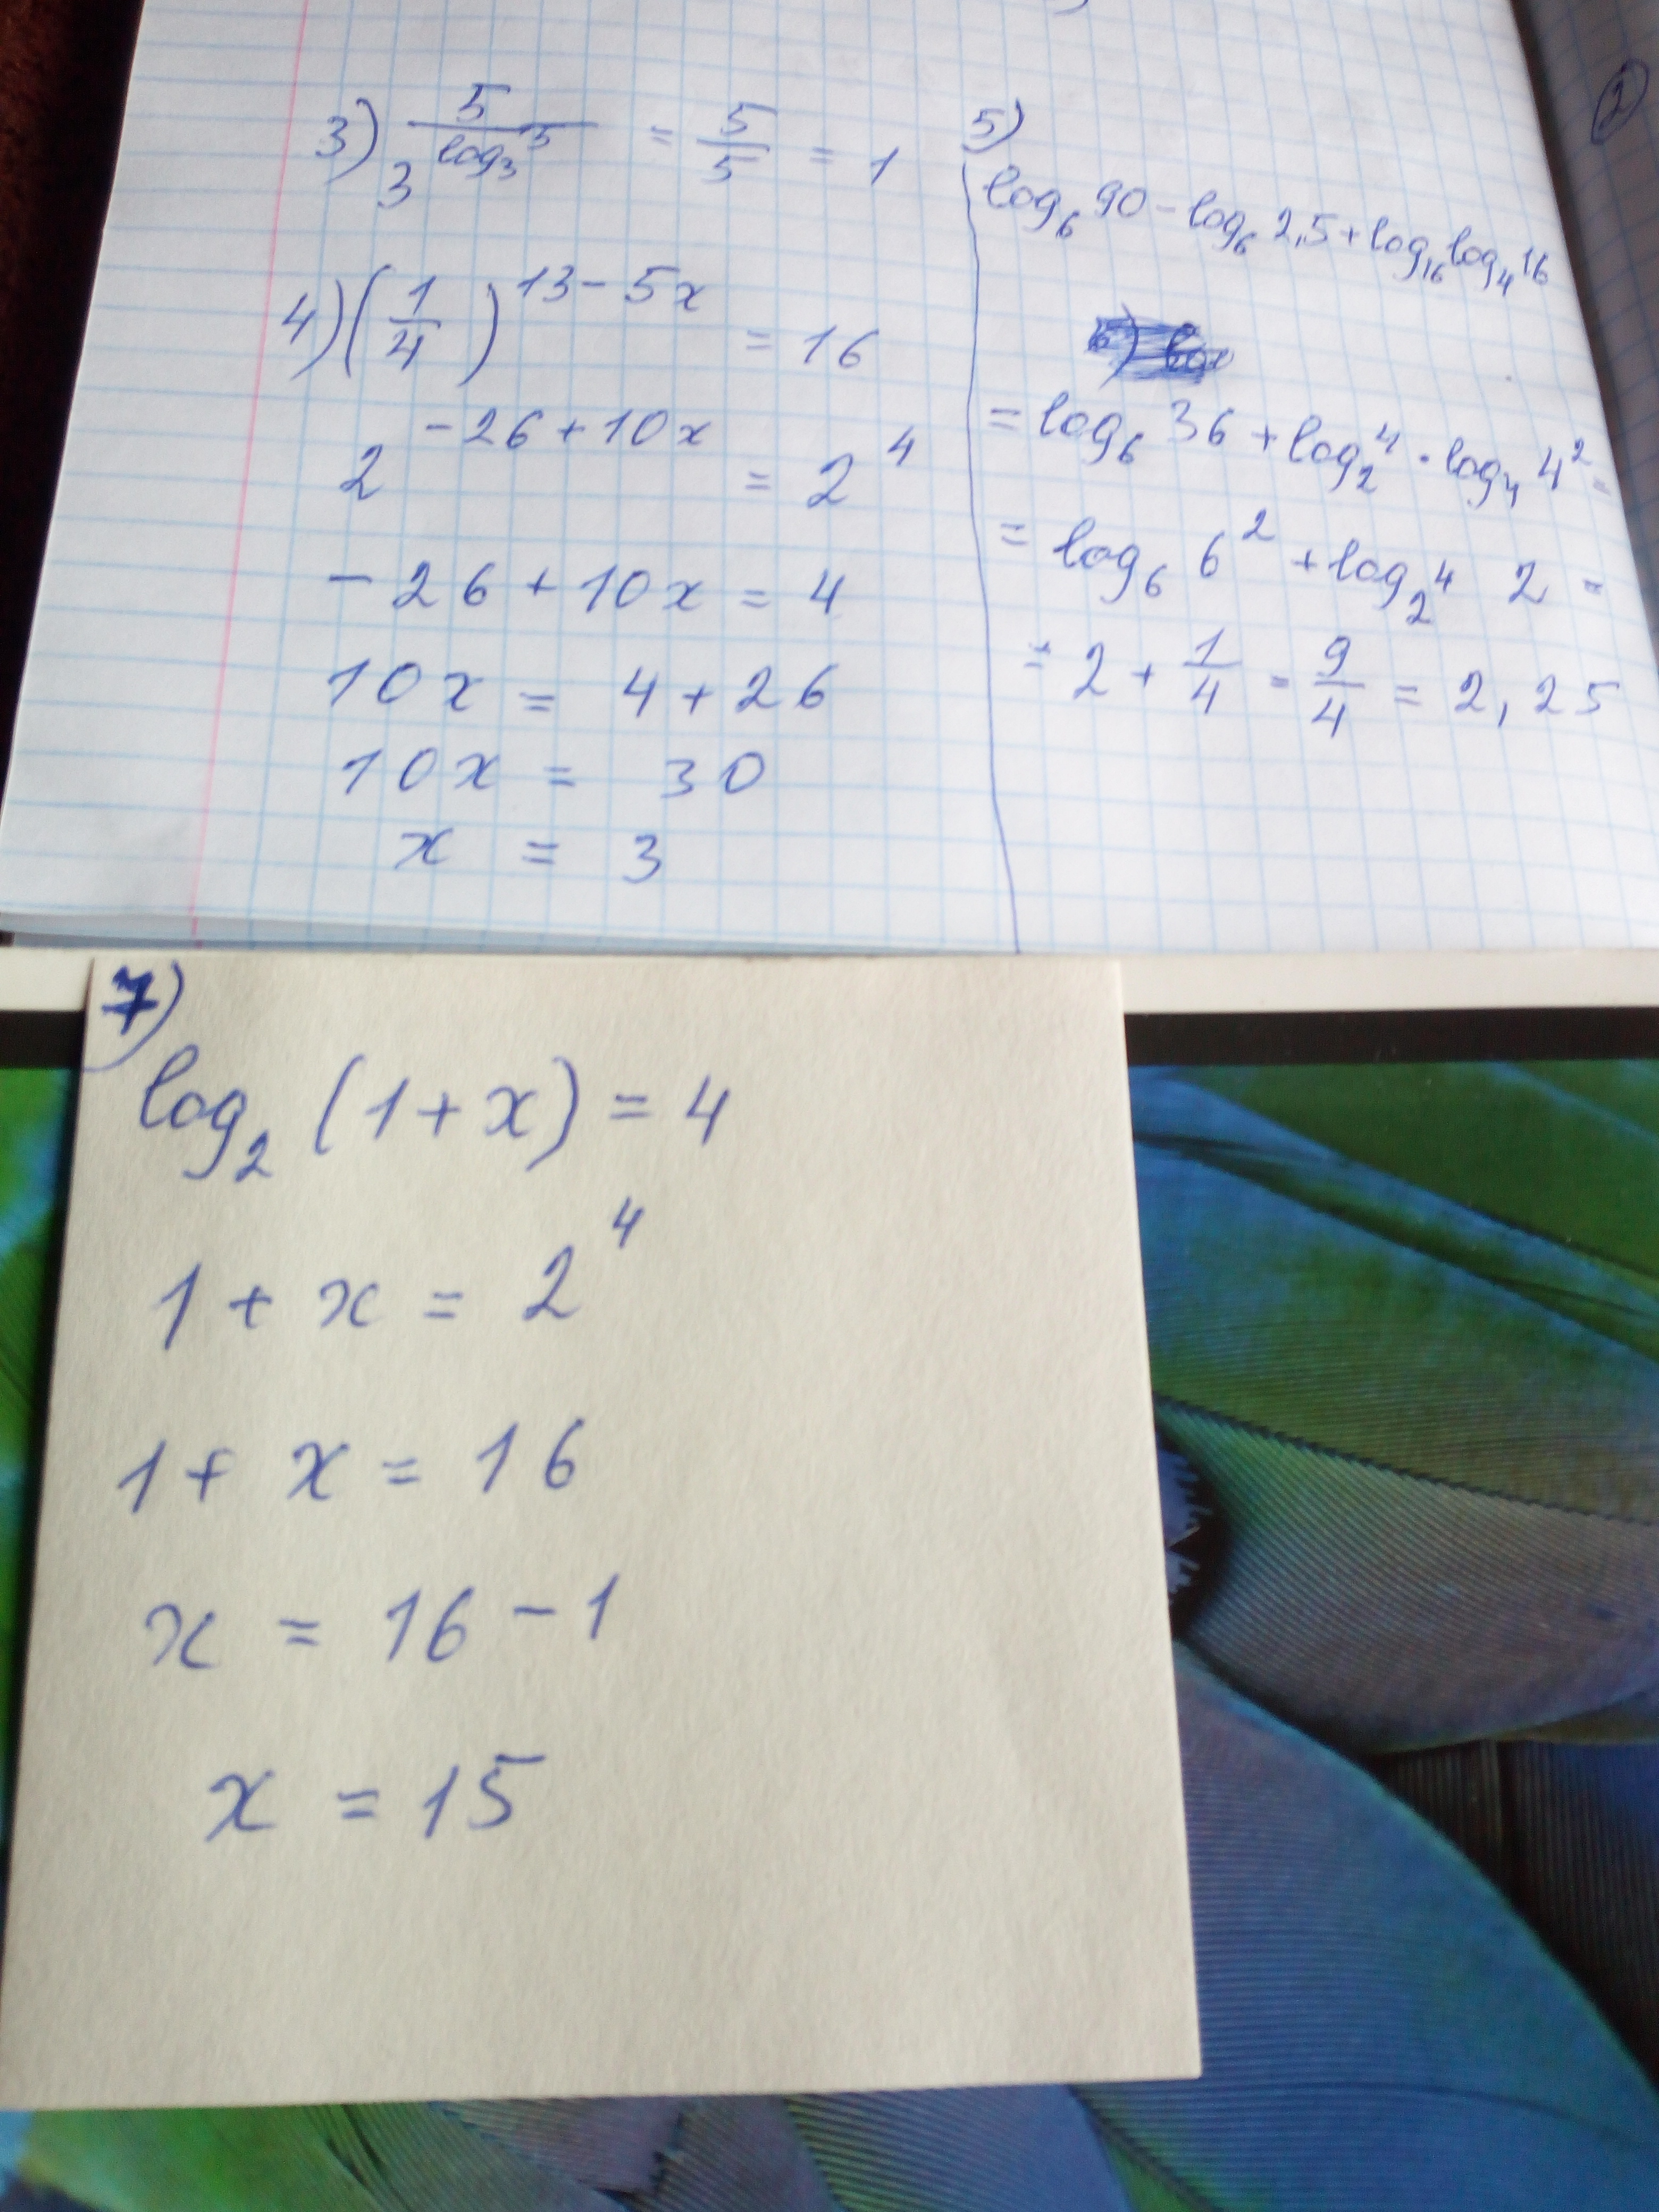 3) 5 / 3^(log₃5) = 5/5 = 1
4) (1/4)^(13-5x) = 16
2^(-26+10x) = 2^4
-26+10x = 4
10x = 4+26
10x = 30
x = 3
5)
log₆ 90 - log₆ 2,5 + log₁₆ log₄ 16
= log₆ 36 + log₂⁴ · log₄ 4² =
= log₆ 6² + log₂⁴ 2 =
= 2 + 1/4 = 9/4 = 2,25
2
7)
log₂ (1+x) = 4
1 + x = 2⁴
1 + x = 16
x = 16 - 1
x = 15